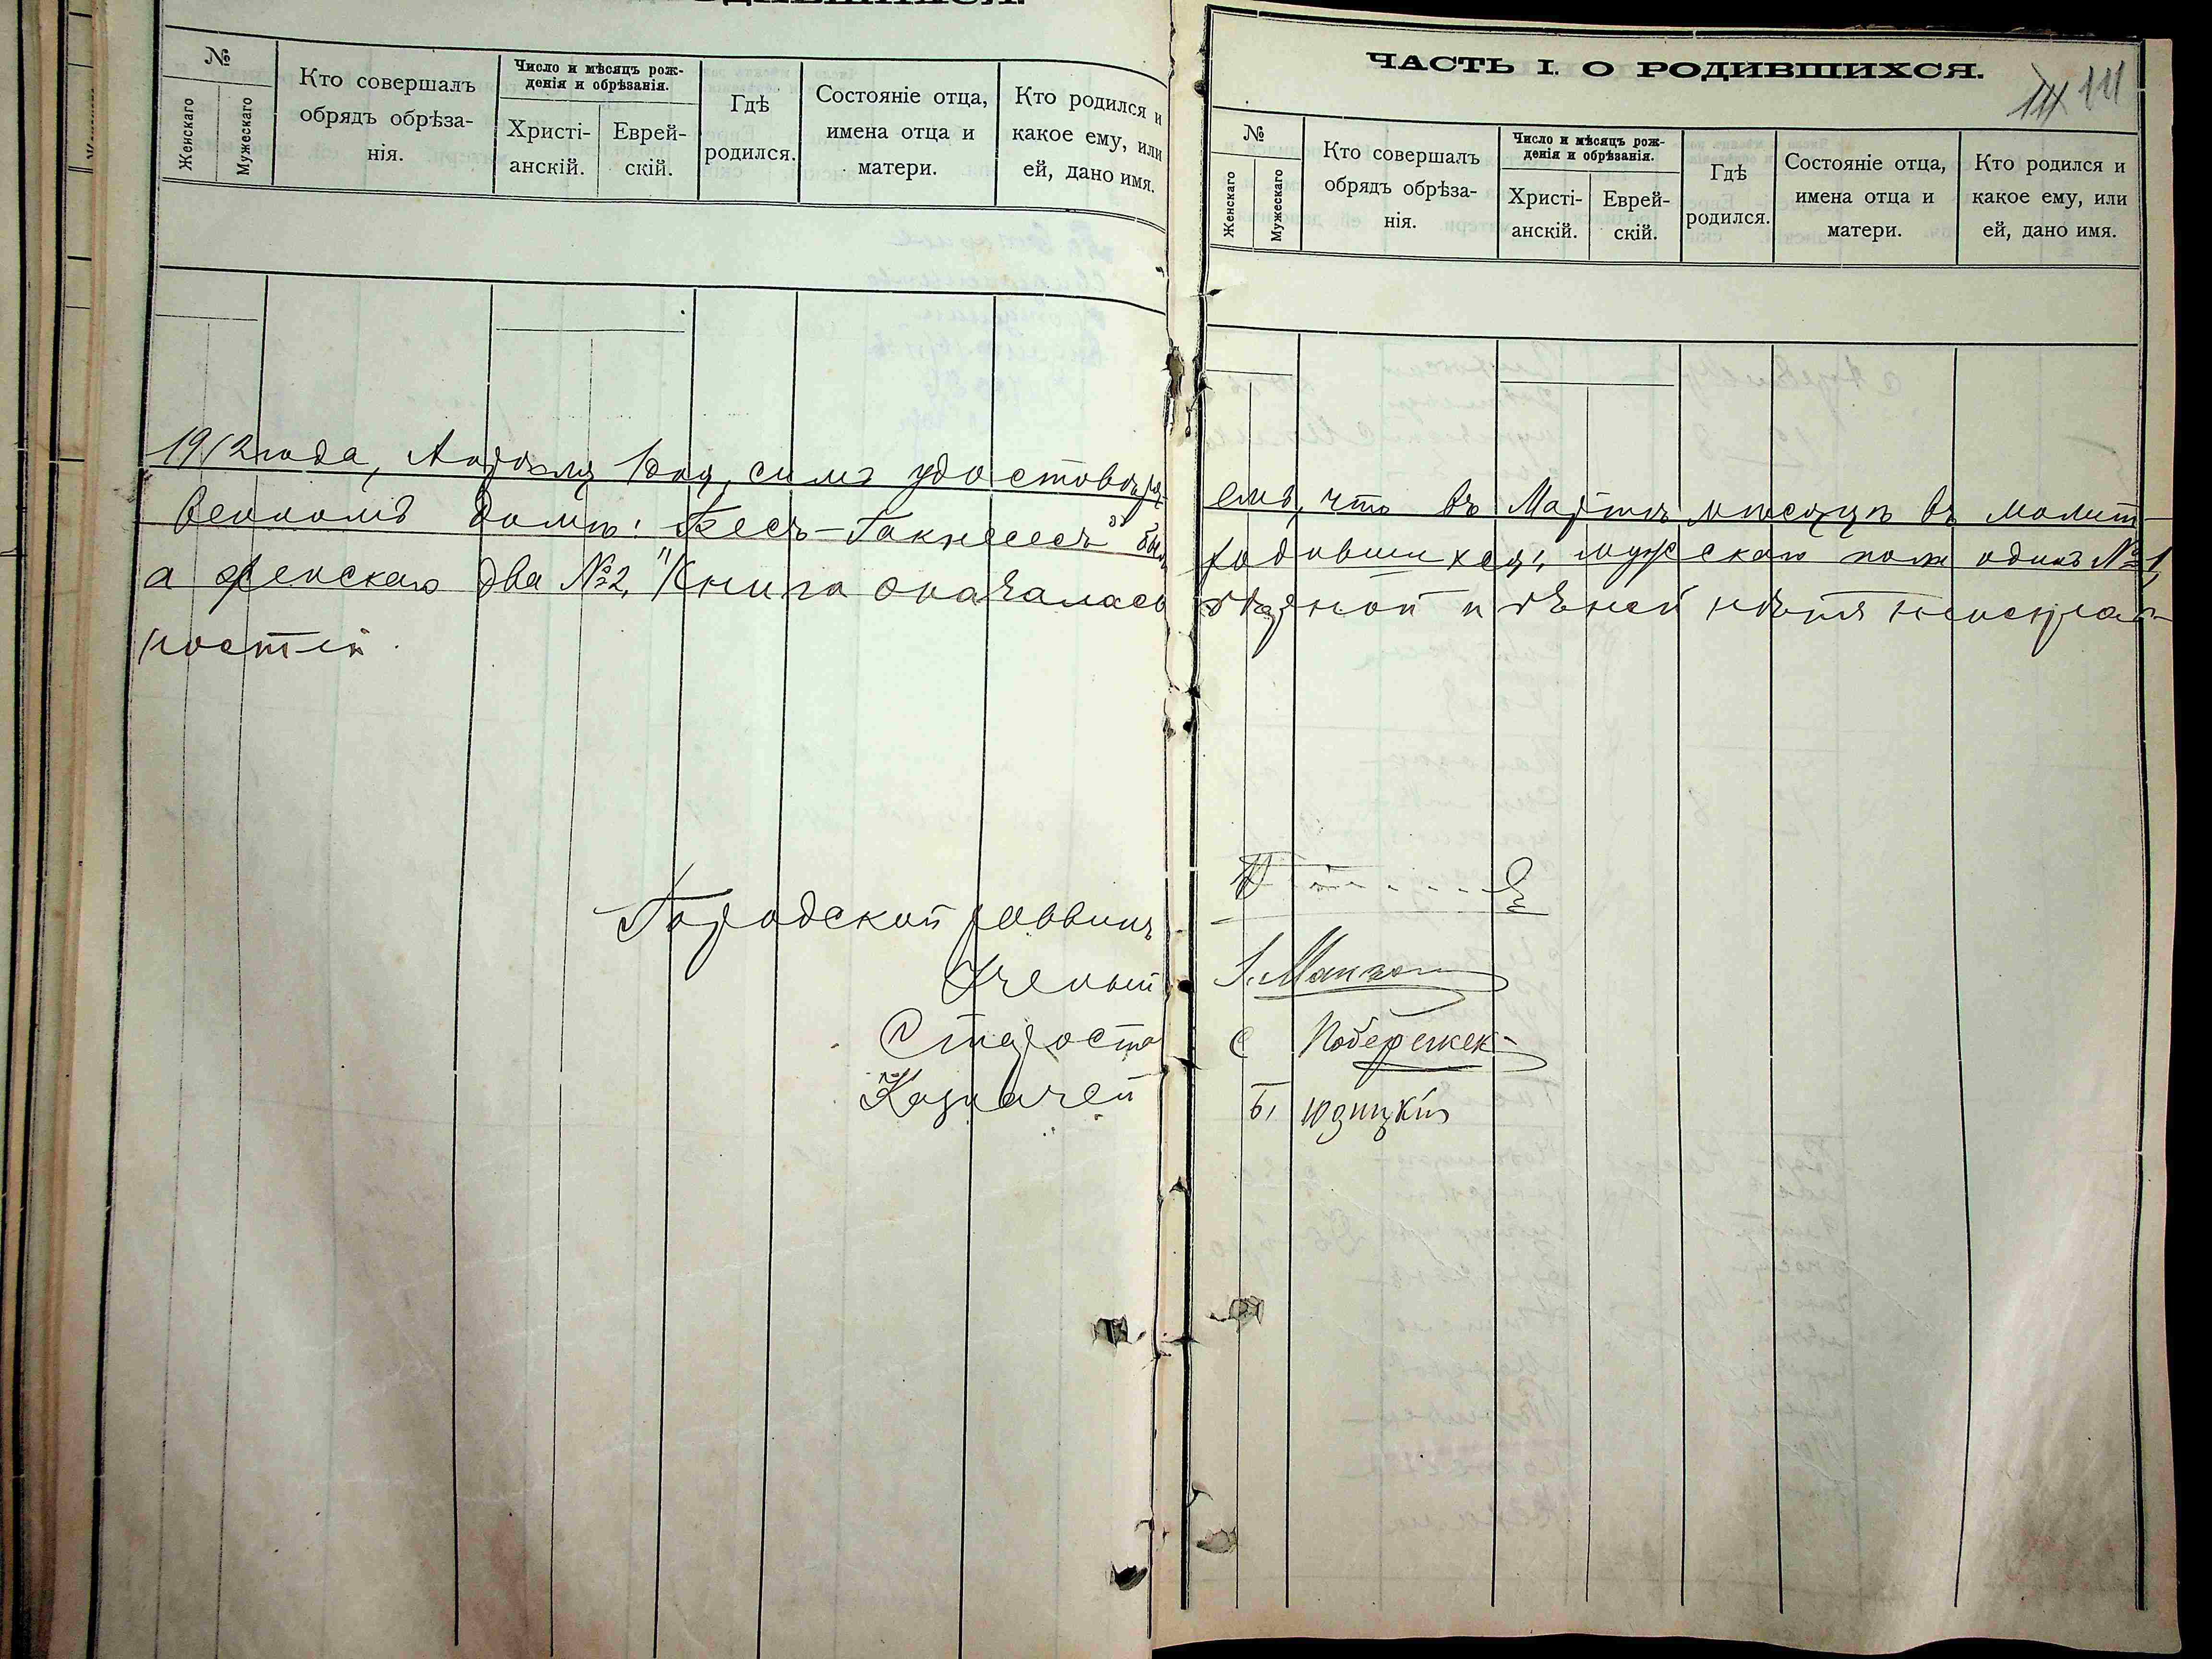 №
Женскаго
Мужескаго
Кто совершалъ
обрядъ обрѣза-
нія.
Число и мѣсяцъ рож-
денія и обрѣзанія.
Христі-
анскій.
Еврей-
скій.
Гдѣ
родился.
Состояніе отца,
имена отца и
матери.
Кто родился и
какое ему, или
ей, дано имя.
ЧАСТЬ I. О РОДИВШИХСЯ.
111
№
Женскаго
Мужескаго
Кто совершалъ
обрядъ обрѣза-
нія.
Число и мѣсяцъ рож-
денія и обрѣзанія.
Христі-
анскій.
Еврей-
скій.
Гдѣ
родился.
Состояніе отца,
имена отца и
матери.
Кто родился и
какое ему, или
ей, дано имя.
1912 года, Апрѣля 1 дня, симъ удостовѣря-
емъ, что въ Мартѣ мѣсяцѣ въ молит-
венномъ домѣ: Бесъ-Гакнесесъ было
родившихся: мужскаго пола одинъ №1,
а женскаго два №2. Книга оказалась
цѣльной и въ ней нѣтъ неисправ-
ностей.
Городской раввинъ
Ученый
Староста С Побережск
Казначей Б. Юзицкій